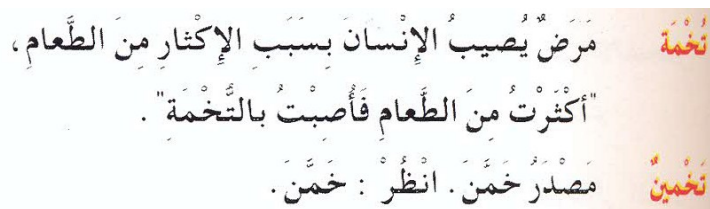 تُخْمَة مَرَضٌ يُصيبُ الإِنْسانَ بِسَبَبِ الإِكْثارِ مِنَ الطَّعامِ،
"أَكْثَرْتُ مِنَ الطَّعامِ فَأُصِبْتُ بالتُّخْمَةِ".
تَخْمينٌ مَصْدَرُ خَمَّنَ. انْظُرْ : خَمَّنَ.